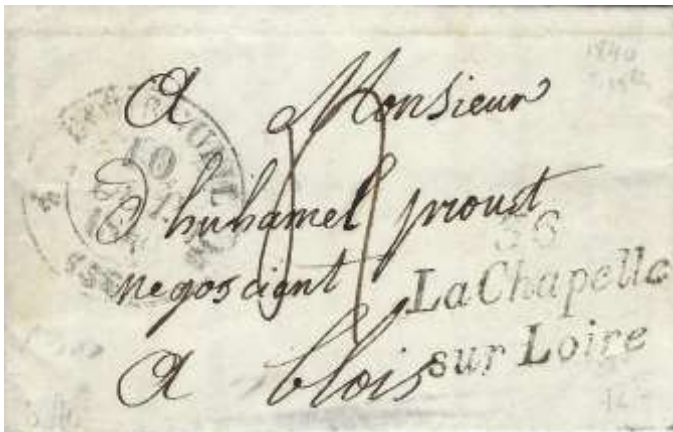 A Monsieur
Dhuhamel proust
negosciant
A blois
36
La Chapelle
sur Loire
10
1840